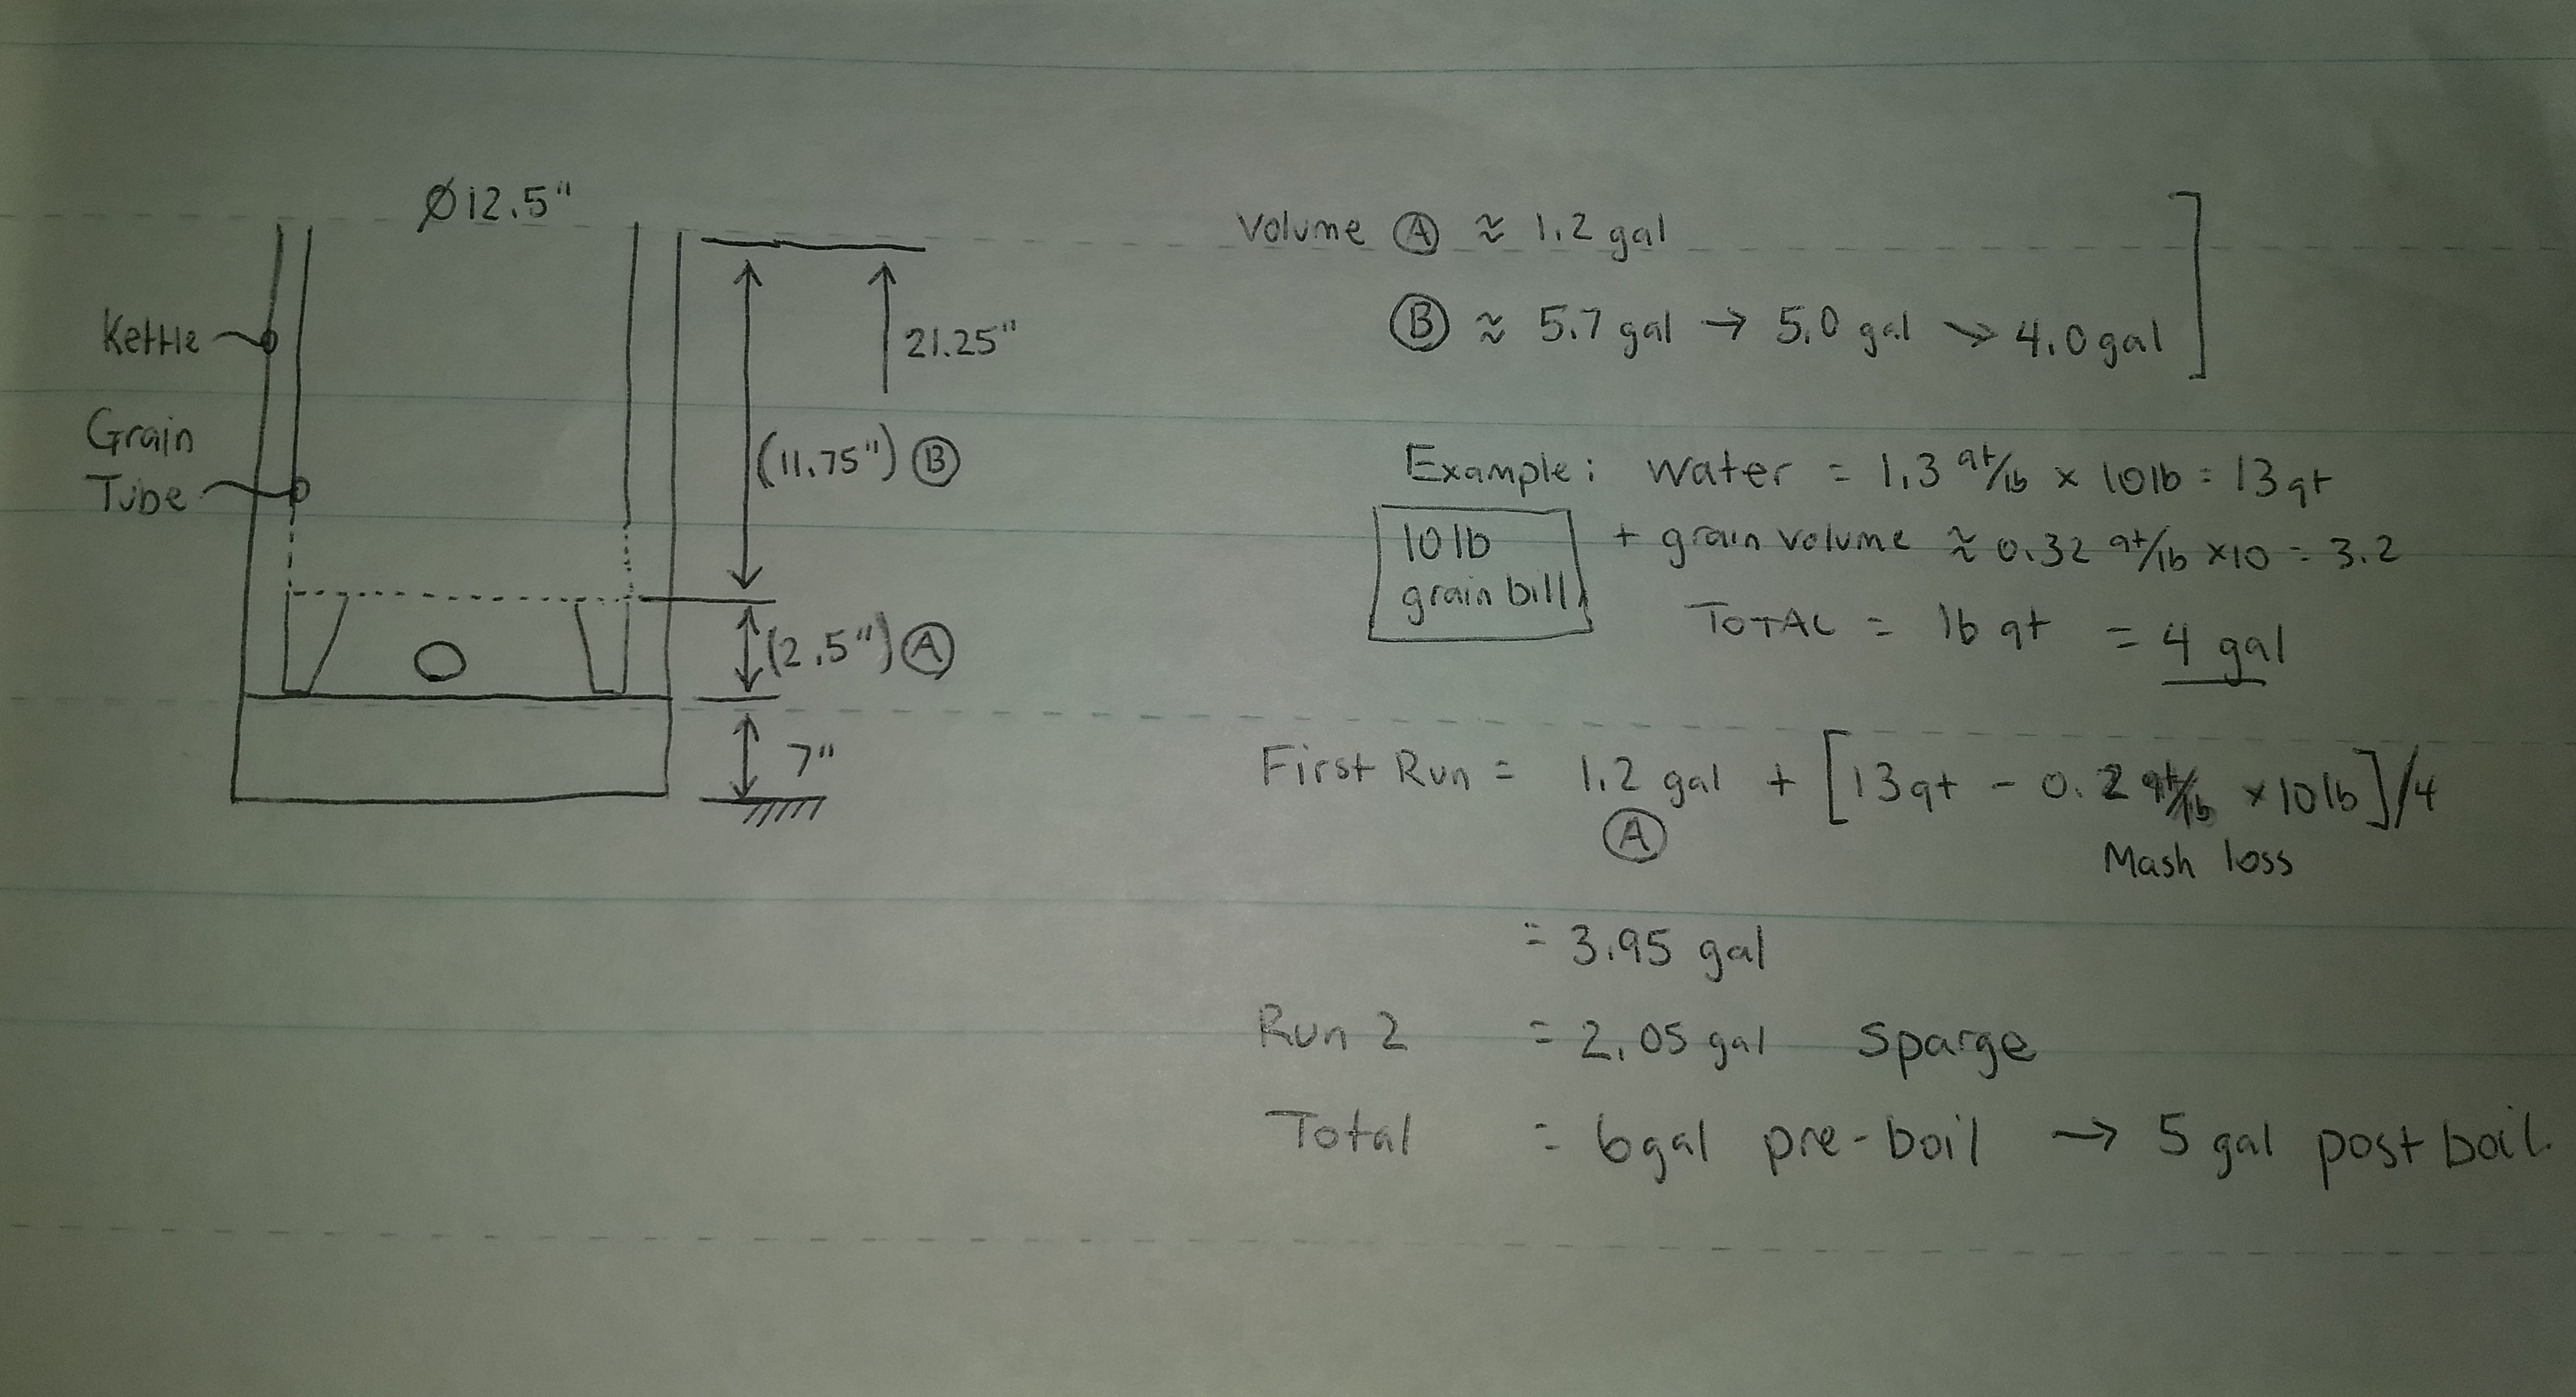 Ø12.5"
Kettle
Grain
Tube
21.25"
(11.75") B
(2.5") A
7"
Volume A ≈ 1.2 gal
B ≈ 5.7 gal → 5.0 gal → 4.0 gal ]
Example: Water = 1.3 qt/lb × 10lb = 13qt
10lb
grain bill
+ grain volume ≈ 0.32 qt/lb ×10 = 3.2
TOTAL = 16 qt = 4 gal
First Run = 1.2 gal + [13qt - 0.2 qt/lb × 10lb]/4
A
Mash loss
= 3.95 gal
Run 2 = 2.05 gal Sparge
Total = 6gal pre-boil → 5 gal post boil.